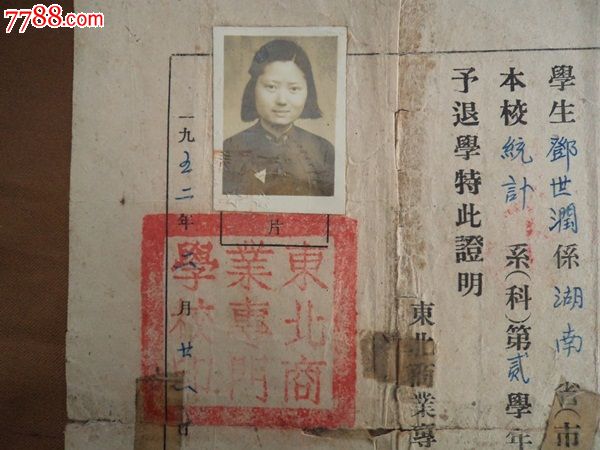 7788.com
學生鄧世潤係湖南省(市
本校統計系(科)第貳學年
予退學特此證明
東北商業專
片
東北商
業專門
學校印
一九五二年二月廿八日